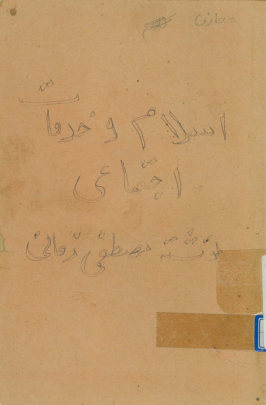 اسلام و خدمات
اجتماعی
نوشته مصطفی زمانی